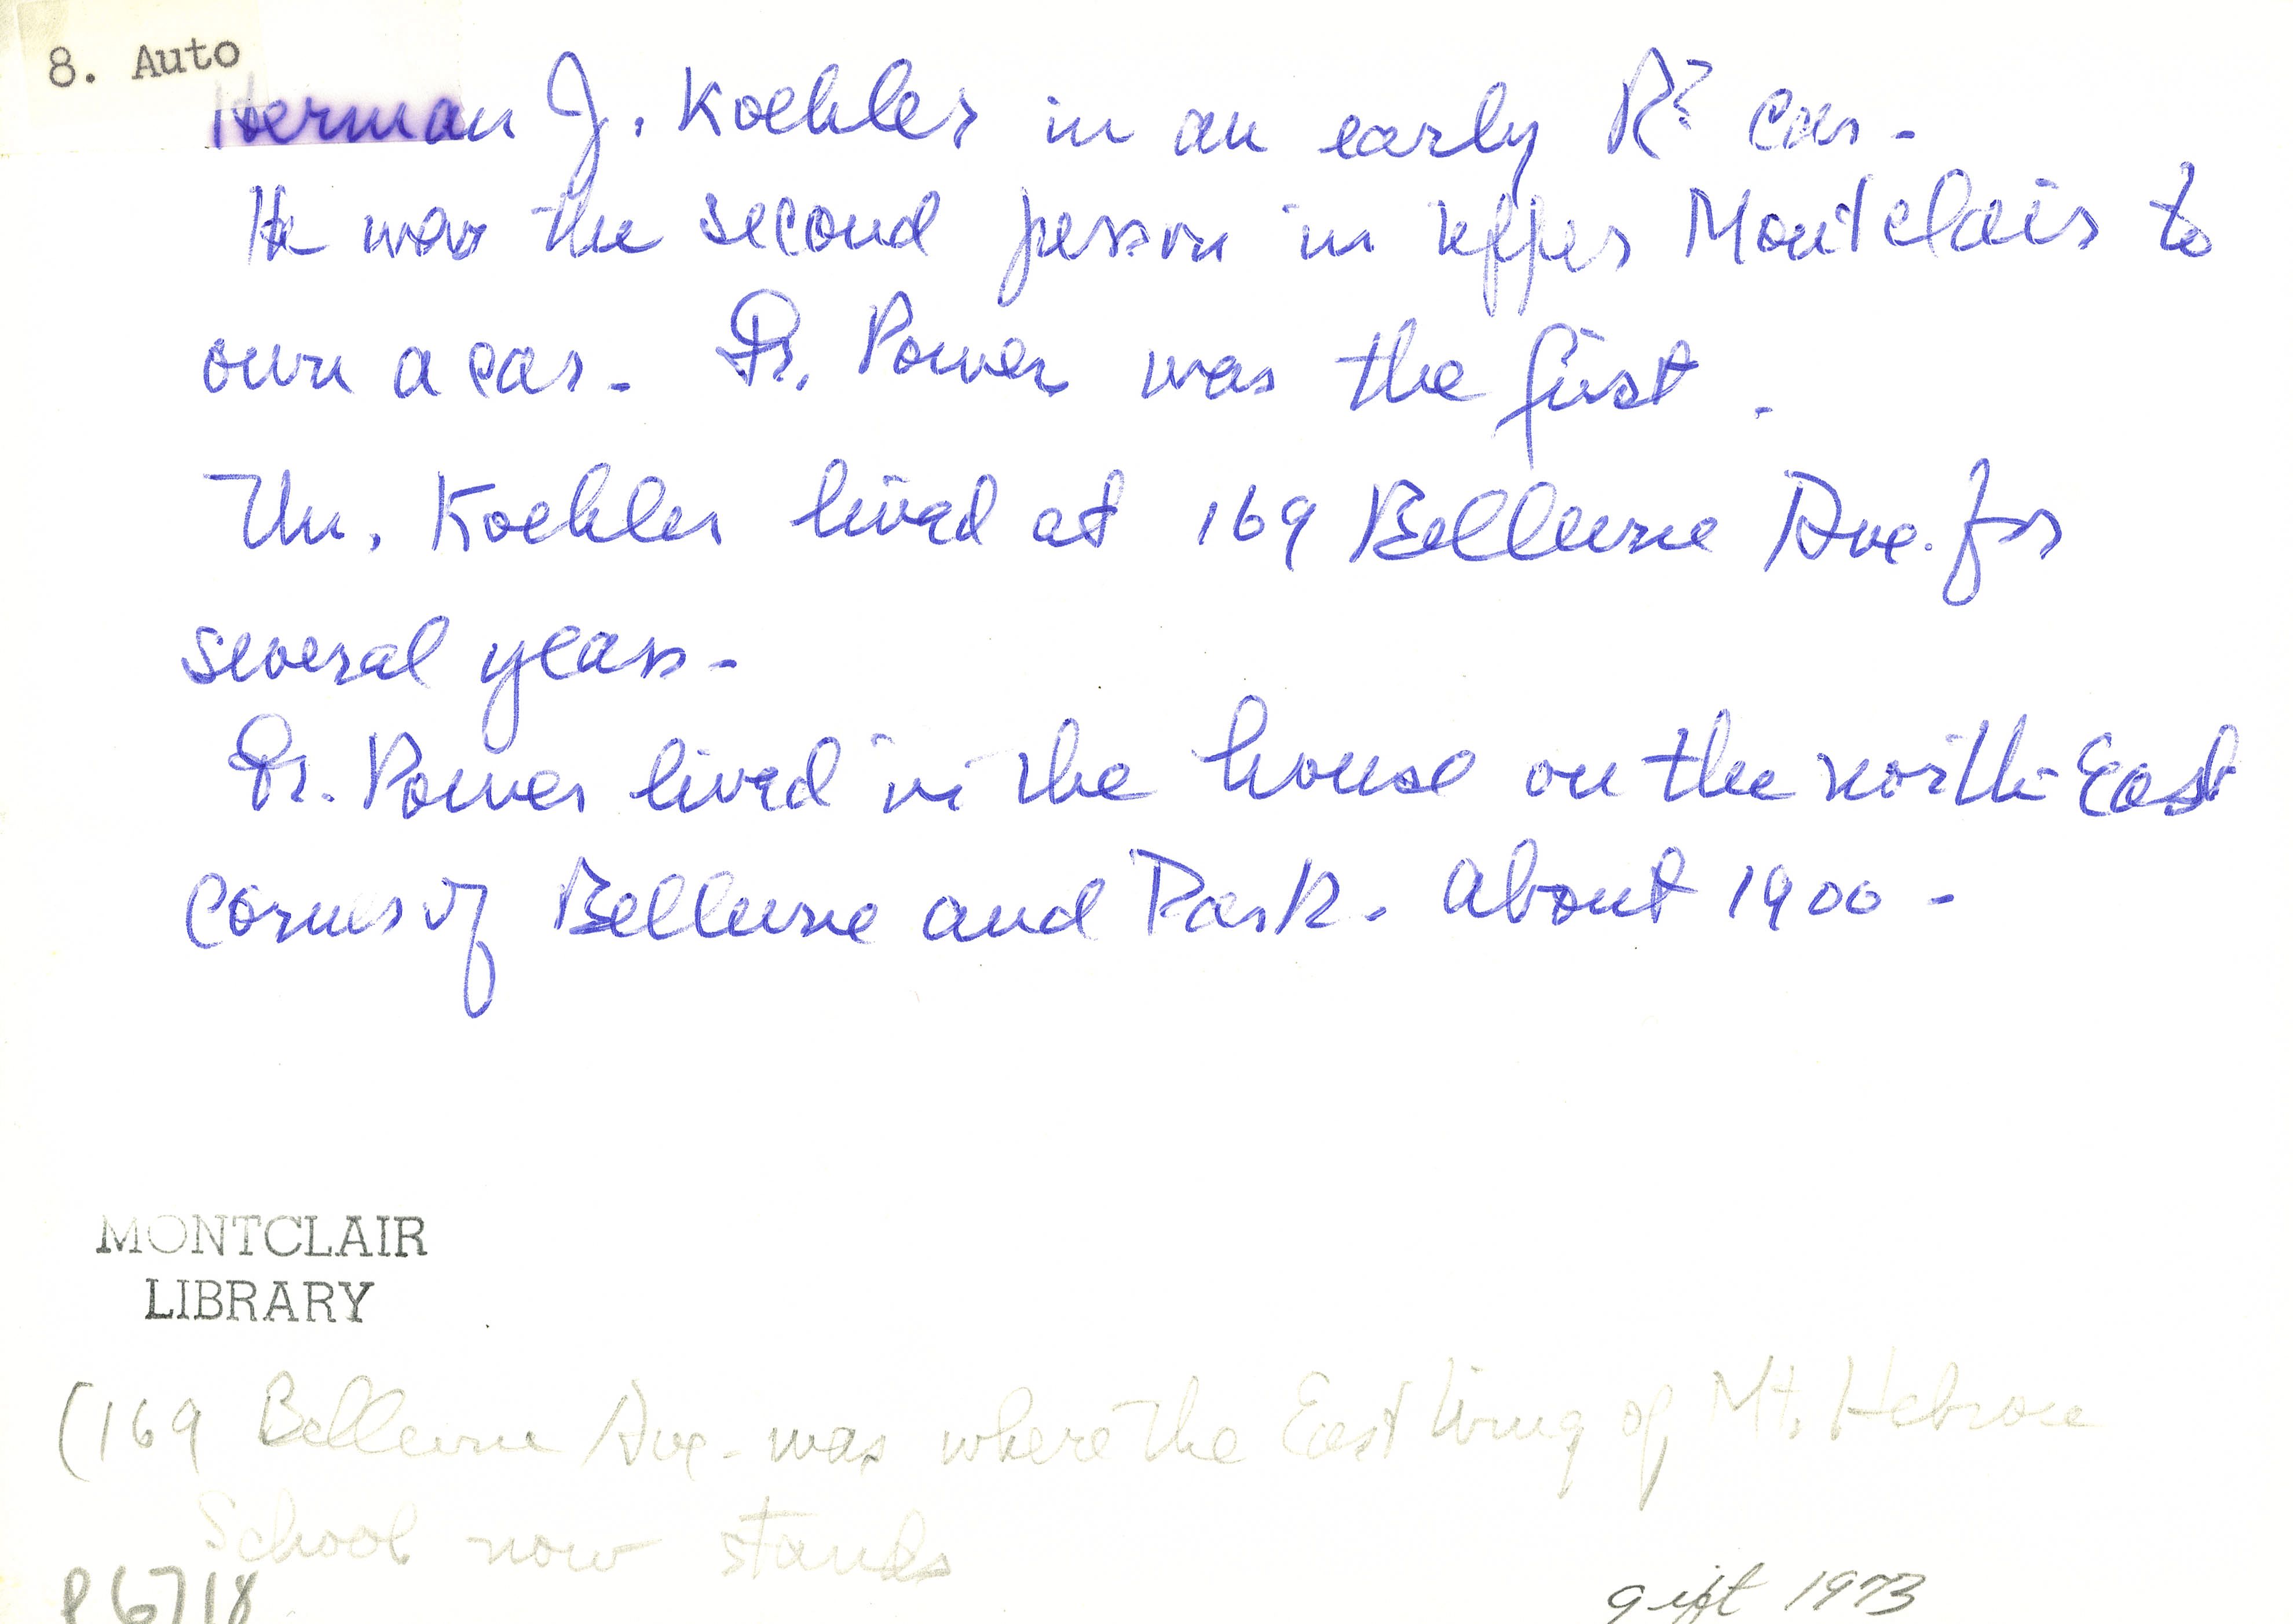 8. Auto
Herman J. Koehler in an early R? car.
He was the second person in upper Montclair to
own a car. Dr. Power was the first.
Mr. Koehler lived at 169 Bellevue Ave. for
several years.
Dr. Power lived in the house on the north-East
Corner of Bellevue and Park. about 1900-
MONTCLAIR
LIBRARY
(169 Bellevue Ave. was where the East Wing of Mt. Hebron
School now stands
gift 1973